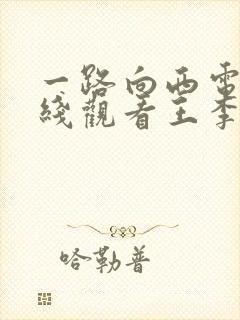 一路向西電
綫觀看王李
哈勒普